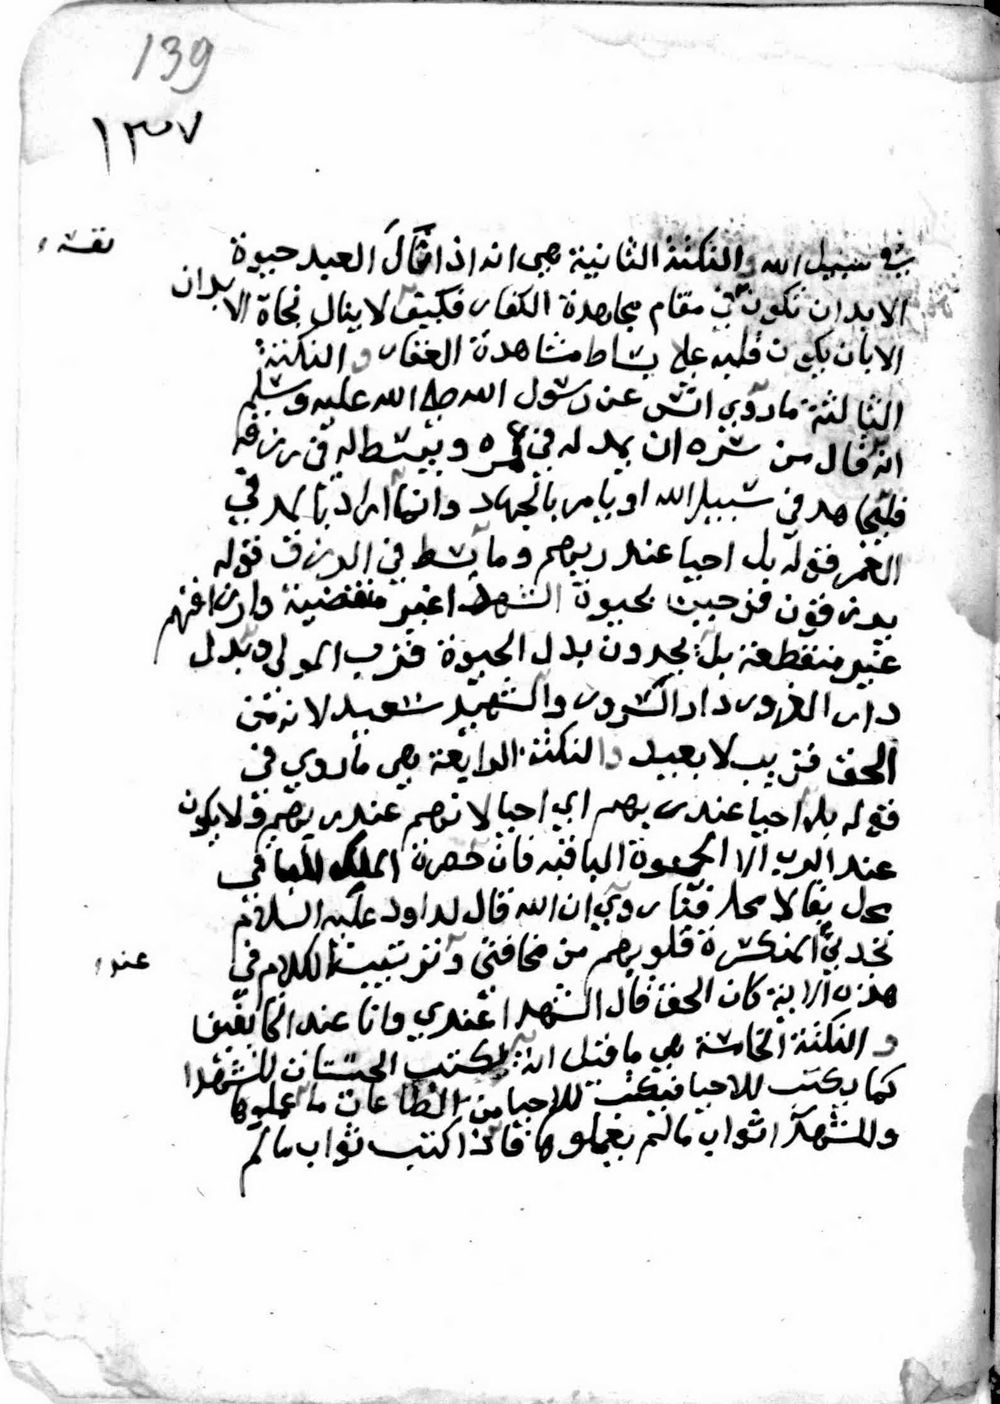 139
١٣٧
في سبيل الله والنكتة الثانية هي انه اذا نال العبد حيوة
نفسه
الابدان تكون في مقام مجاهدة الكفار فكيف لا ينال نجاة الابدان
الا بان يكون قلبه على بساط مشاهدة الغفار والنكتة
الثالثة ما روي انس عن رسول الله صلى الله عليه وسلم
انه قال من سره ان يمد له في عمره ويبسط له في رزقه
فليجاهد في سبيل الله او يامر بالجهاد وانما اراد بالمد في
العمر قوله بل احيا عند ربهم وما يبسط في الرزق قوله
يرزقون فرحين بحيوة الشهدا غير منقضية وارزاقهم
غير منقطعة بل يجدون بدل الحيوة قرب المولى وبدل
دار الغرور دار السرور والشهيد سعيد لانه من
الحق قريب لا بعيد والنكتة الرابعة هي ما روي في
قوله بل احيا عند ربهم اي احيا لانهم عند ربهم ولا يكون
عند الرب الا الحيوة الباقية فان حضرة الملك الباقي
محل بقا لا محل فنا روي ان الله قال لداود عليه السلام
تجدني المنكسرة قلوبهم من مخافتي وترتيب الكلام في
عند
هذه الاية كان الحق قال الشهدا عندي وانا عند الخايفين
والنكتة الخامسة هي ما قيل انه يكتب الحسنات للشهدا
كما يكتب للاحيا فيكتب للاحيا من الطاعات ما عملوها
وللشهدا ثواب ما لم يعملوها فاذا كتب ثواب ما لم